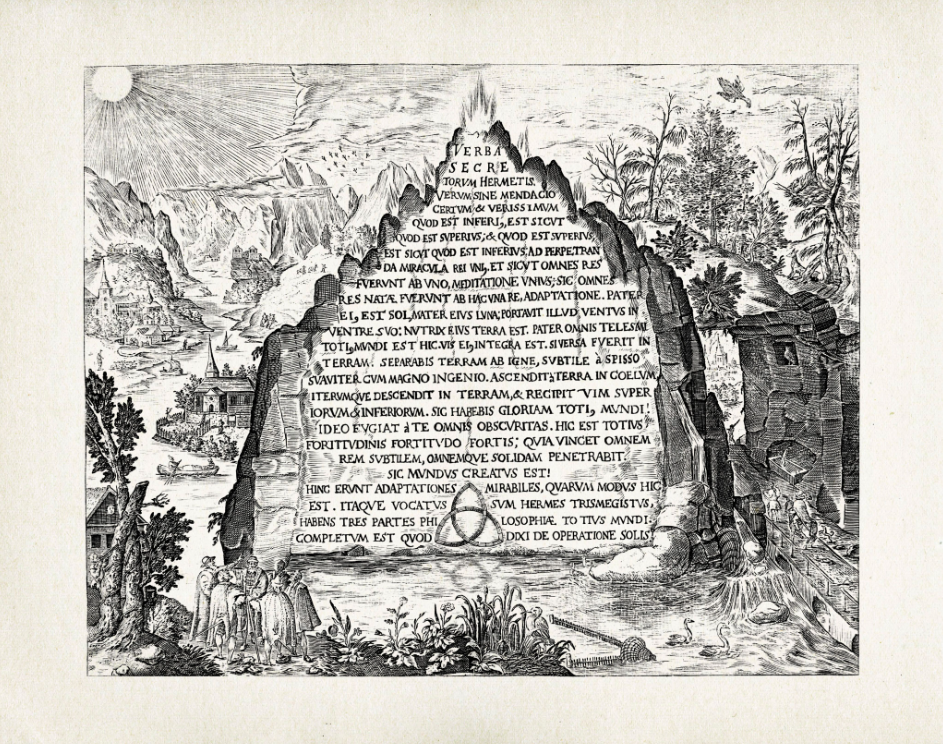 VERBA
SECRE
TORVM HERMETIS.
VERVM SINE MENDACIO
CERTVM & VERISSIMVM
QVOD EST INFERI, EST SICVT
QVOD EST SVPERIVS; & QVOD EST SVPERIVS,
EST SICVT QVOD EST INFERIVS, AD PERPETRAN
DA MIRACVLA REI VNI, ET SICVT OMNES RES
FVERVNT AB VNO, MEDITATIONE VNIVS; SIC OMNES
RES NATÆ FVERVNT AB HAC VNA RE, ADAPTATIONE. PATER
EI, EST SOL, MATER EIVS LVNA; PORTAVIT ILLVD VENTVS IN
VENTRE SVO: NVTRIX EIVS TERRA EST. PATER OMNIS TELESMI
TOTI, MVNDI EST HIC. VIS EI, INTEGRA EST. SI VERSA FVERIT IN
TERRAM. SEPARABIS TERRAM AB IGNE, SVBTILE à SPISSO
SVAVITER CVM MAGNO INGENIO. ASCENDIT à TERRA IN COELVM,
ITERVMQVE DESCENDIT IN TERRAM, & RECIPIT VIM SVPER
IORVM & INFERIORVM. SIC HABEBIS GLORIAM TOTI, MVNDI!
IDEO FVGIAT à TE OMNIS OBSCVRITAS. HIC EST TOTIVS
FORTITVDINIS FORTITVDO FORTIS; QVIA VINCET OMNEM
REM SVBTILEM, OMNEMQVE SOLIDAM PENETRABIT.
SIC MVNDVS CREATVS EST!
HINC ERVNT ADAPTATIONES MIRABILES, QVARVM MODVS HIC
EST. ITAQVE VOCATVS SVM HERMES TRISMEGISTVS,
HABENS TRES PARTES PHI LOSOPHIÆ TOTIVS MVNDI.
COMPLETVM EST QVOD DIXI DE OPERATIONE SOLIS